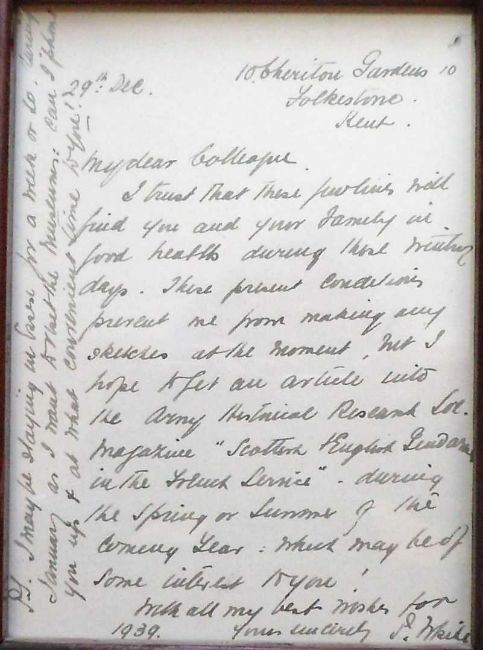 10. Cheriton Gardens 10
Folkestone.
Kent.
29th Dec.
My dear Colleague.
I trust that these few lines will
find you and your Family in
good health during those wintry
days. These present conditions
prevent me from making any
sketches at the moment, but I
hope to get an article into
the Army Historical Research Soc.
Magazine "Scottish & English Gendarmes
in the French Service" - during
the Spring or Summer of the
Coming Year: which may be of
some interest to you!
With all my best wishes for
1939. Yours sincerely P. White
P.S. I may be staying in for a week or so. during
January as I want to visit the Museums: can I 'phone
you up & at what convenient time to you?